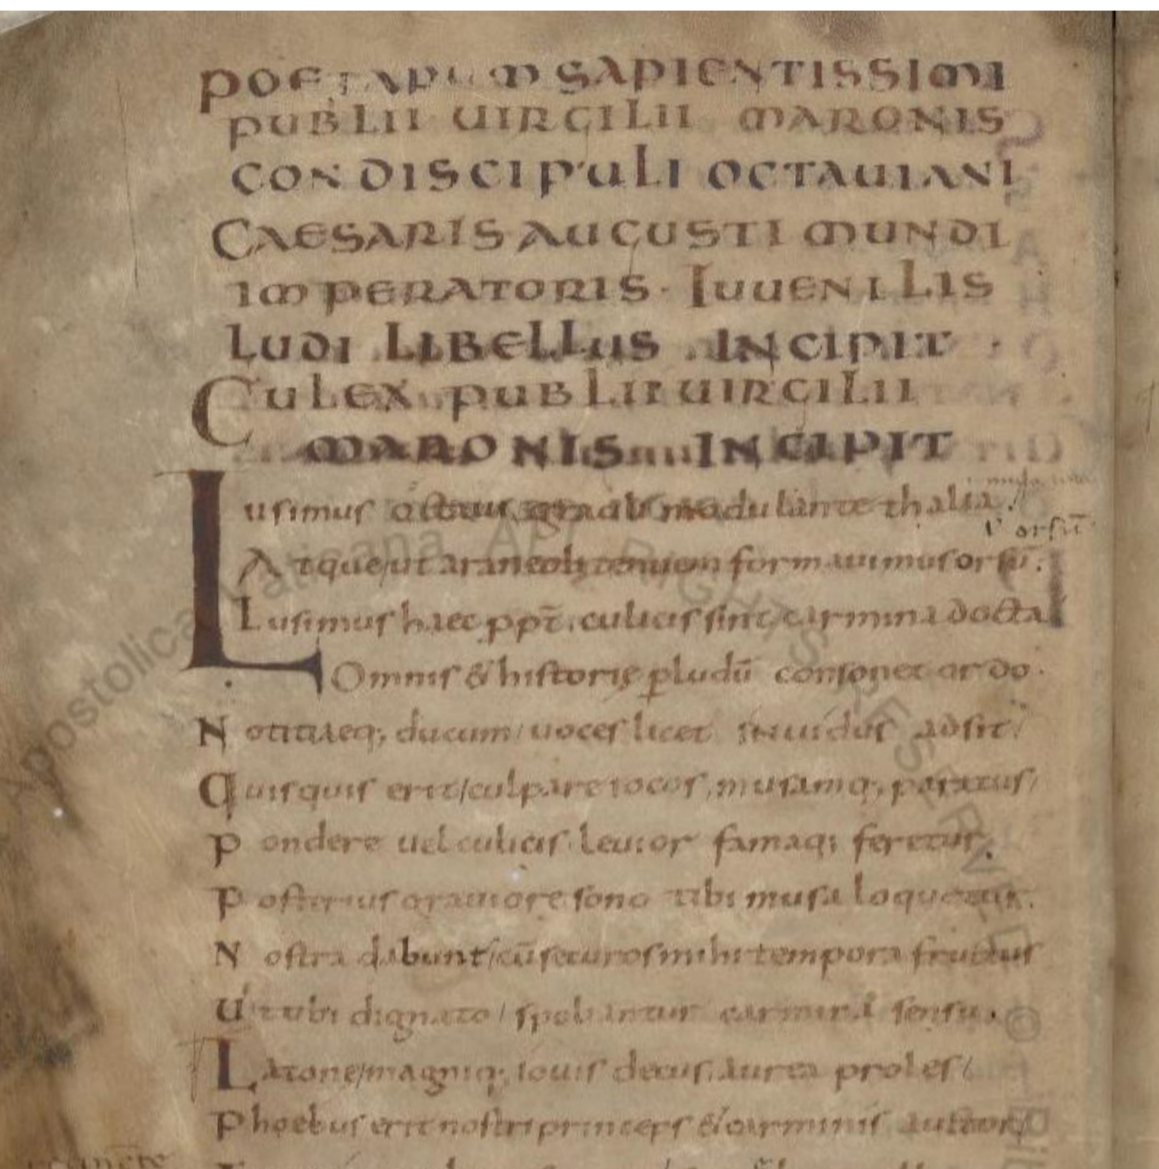 POETARUM SAPIENTISSIMI
PUBLII UIRGILII MARONIS
CONDISCIPULI OCTAUIANI
CAESARIS AUGUSTI MUNDI
IMPERATORIS · IUUENILIS
LUDI LIBELLUS INCIPIT ·
CULEX PUBLII UIRGILII
MARONIS INCIPIT
Lusimus modulante thalia.
ł orsū
Atque ut formauimus orsū.
Lusimus haec ppt̄. culicis sint carmina docta
Omnis & historię pludū consonet ordo.
Notitiaeq; ducum uoces licet inuidus adsit
Quisquis erit culpare iocos, musamq; paratus
Pondere uel culicis leuior famaq; feretur.
Posterius grauiore sono tibi musa loquetur.
Nostra dabunt cū securos mihi tempora fructus
Ut tibi digna to carmina sensu.
Latone magniq; iouis decus, aurea proles
Phoebus erit nostri princeps & carminis auctor
Apostolica Vaticana ALL RIGHTS RESERVED ©